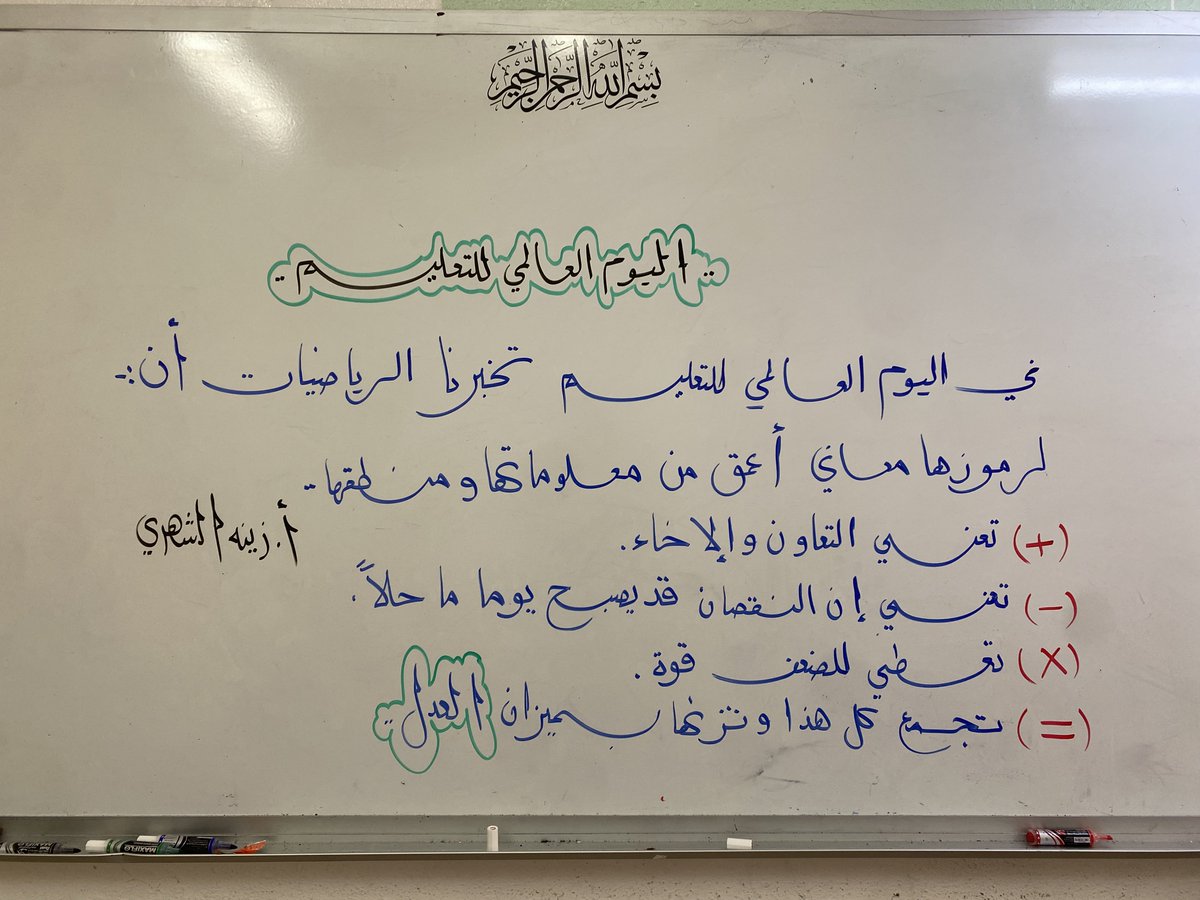 بسم الله الرحمن الرحيم
.. اليوم العالمي للتعليم ..
في اليوم العالمي للتعليم تخبرنا الرياضيات أن:-
لرموزها معاني أعمق من معلوماتها ومنطقها..
(+) تعني التعاون والإخاء.
أ. زينه الشهري
(-) تعني إن النقصان قد يصبح يوما ما حلاً.
(×) تعطي للضعف قوة.
(=) تجمع كل هذا وتزنها بميزان العدل..
MAXIFLO